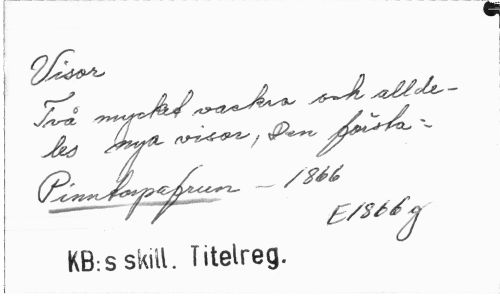 Visor
Två mycket vackra och allde-
les nya visor, Den första:
Pinntorpafruen - 1866
E1866g
KB:s skill. Titelreg.